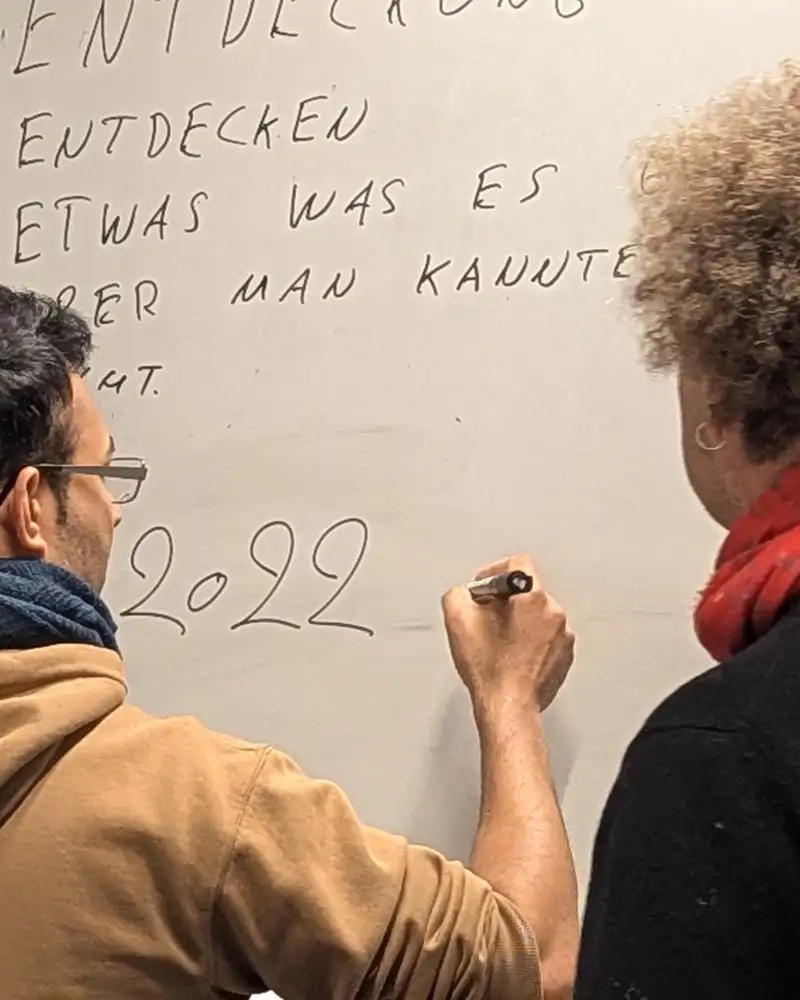 ENTDECKUNG
ENTDECKEN
ETWAS WAS ES
MAN KANNTE
2022